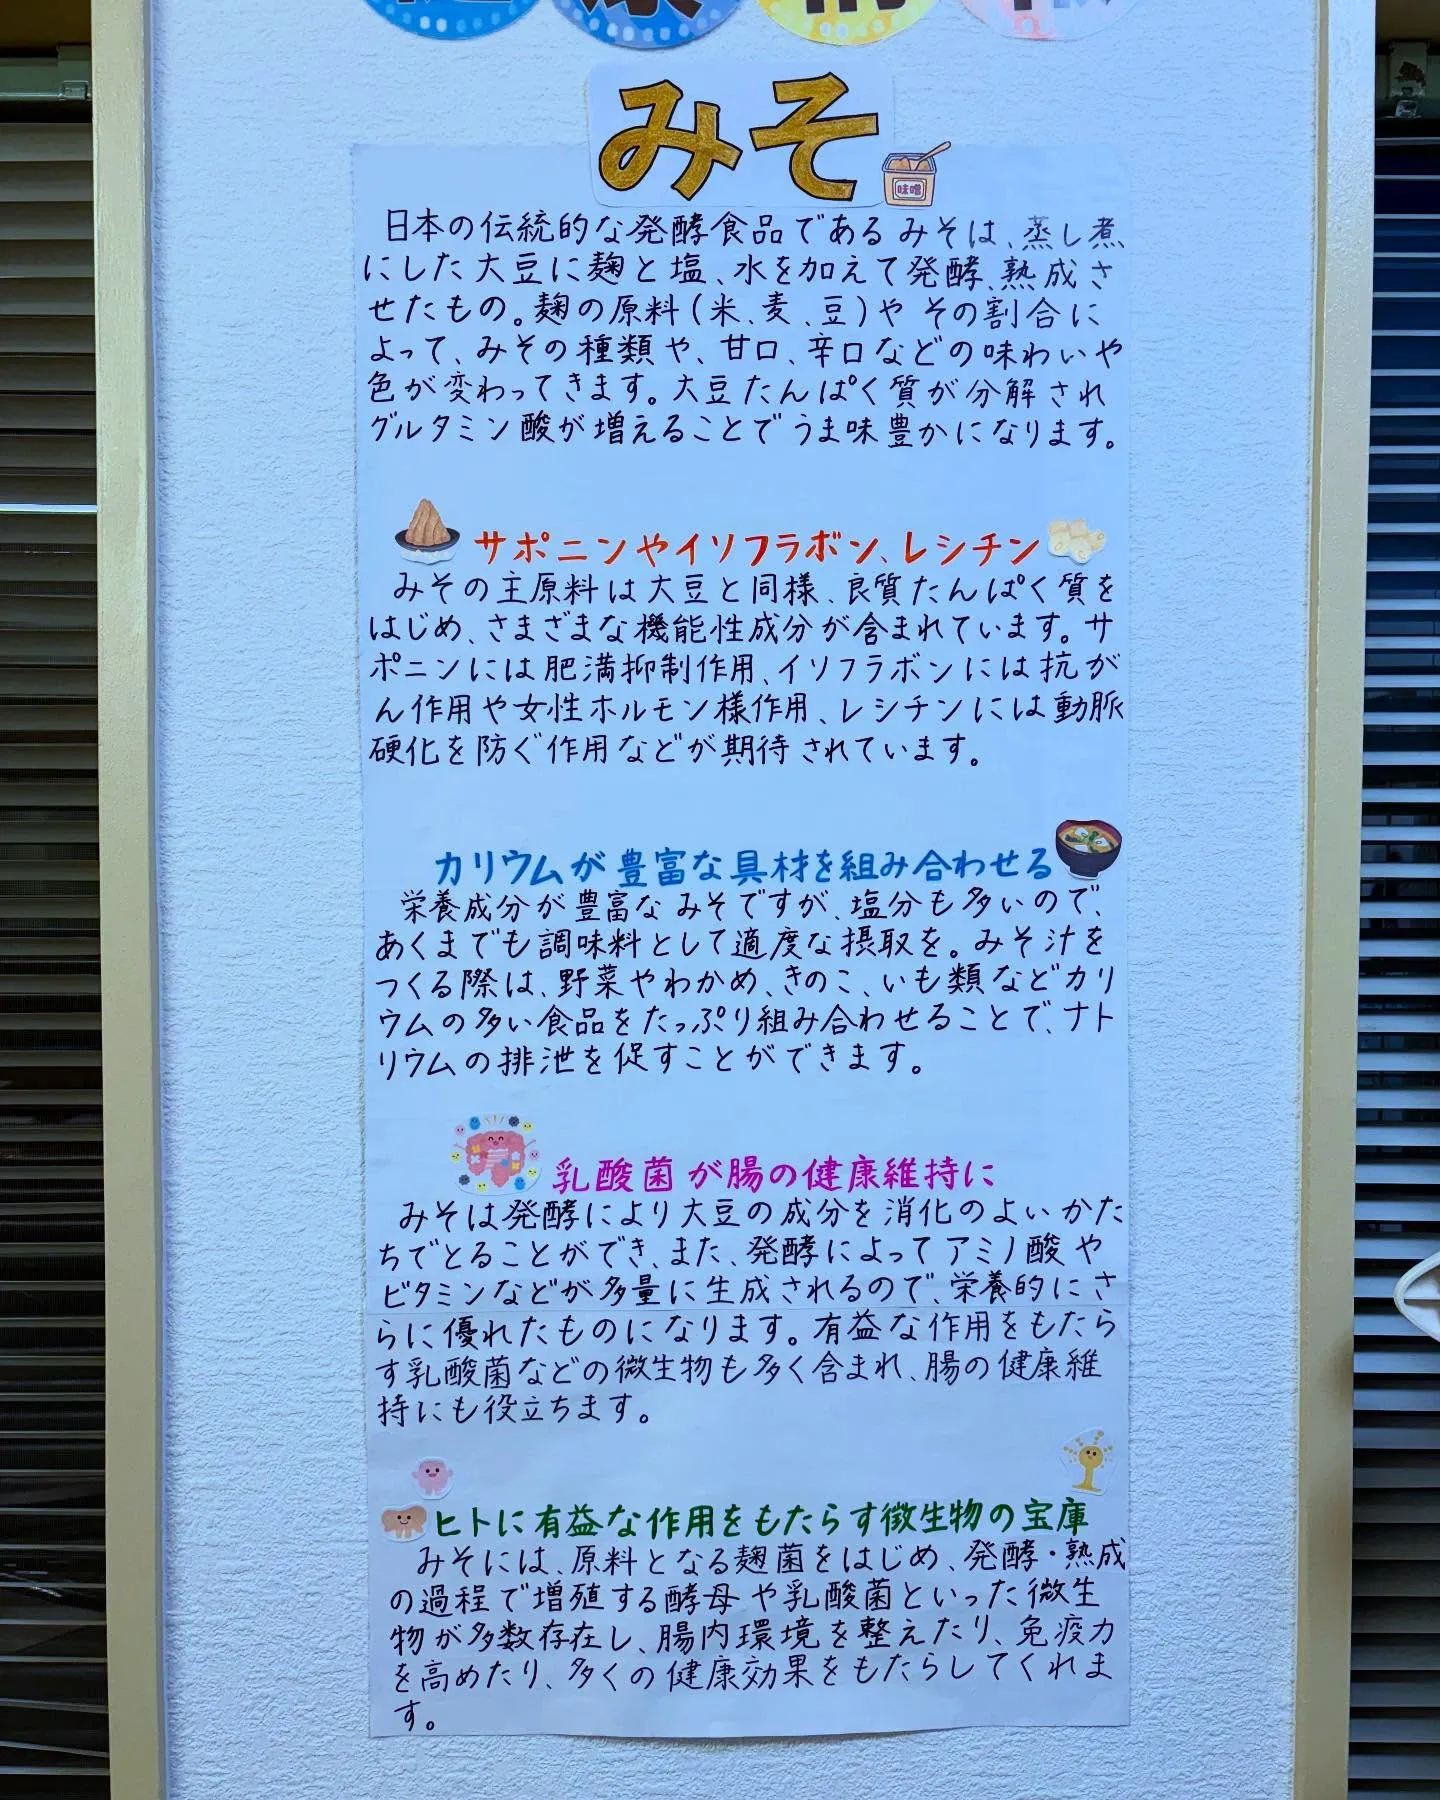 健康情報
みそ
味噌
日本の伝統的な発酵食品であるみそは、蒸し煮
にした大豆に麹と塩、水を加えて発酵、熟成さ
せたもの。麹の原料(米、麦、豆)やその割合に
よって、みその種類や、甘口、辛口などの味わいや
色が変わってきます。大豆たんぱく質が分解され
グルタミン酸が増えることでうま味豊かになります。
サポニンやイソフラボン、レシチン
みその主原料は大豆と同様、良質たんぱく質を
はじめ、さまざまな機能性成分が含まれています。サ
ポニンには肥満抑制作用、イソフラボンには抗が
ん作用や女性ホルモン様作用、レシチンには動脈
硬化を防ぐ作用などが期待されています。
カリウムが豊富な具材を組み合わせる
栄養成分が豊富なみそですが、塩分も多いので、
あくまでも調味料として適度な摂取を。みそ汁を
つくる際は、野菜やわかめ、きのこ、いも類などカリ
ウムの多い食品をたっぷり組み合わせることで、ナト
リウムの排泄を促すことができます。
乳酸菌が腸の健康維持に
みそは発酵により大豆の成分を消化のよいかた
ちでとることができ、また、発酵によってアミノ酸や
ビタミンなどが多量に生成されるので、栄養的にさ
らに優れたものになります。有益な作用をもたら
す乳酸菌などの微生物も多く含まれ、腸の健康維
持にも役立ちます。
ヒトに有益な作用をもたらす微生物の宝庫
みそには、原料となる麹菌をはじめ、発酵・熟成
の過程で増殖する酵母や乳酸菌といった微生
物が多数存在し、腸内環境を整えたり、免疫力
を高めたり、多くの健康効果をもたらしてくれま
す。